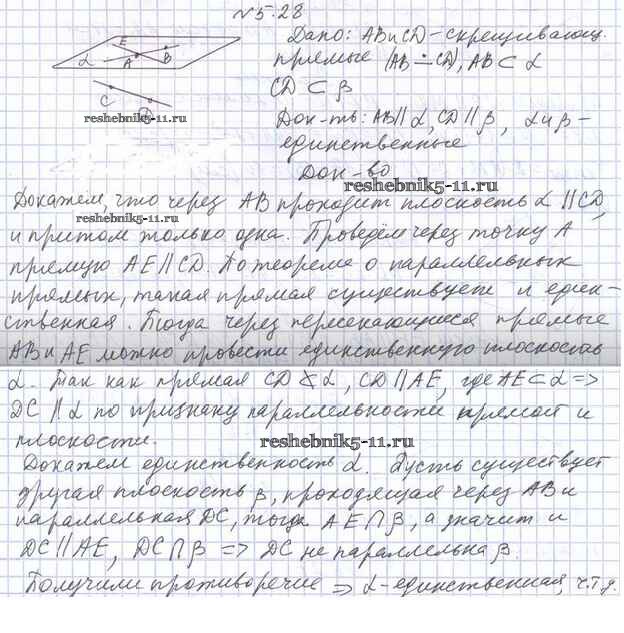 №5.28
Дано: AB и CD - скрещивающ.
прямые (AB ∸ CD), AB ⊂ α
CD ⊂ β
Док-ть: AB || α, CD || β, α и β -
единственные
Док-во
E
α
A
B
C
D
reshebnik5-11.ru
reshebnik5-11.ru
Докажем, что через AB проходит плоскость α || CD,
reshebnik5-11.ru
и притом только одна. Проведём через точку A
прямую AE || CD. По теореме о параллельных
прямых, такая прямая существует и един-
ственная. Тогда через пересекающиеся прямые
AB и AE можно провести единственную плоскость
α. Так как прямая CD ⊄ α, CD || AE, где AE ⊂ α =>
DC || α по признаку параллельности прямой и
плоскости.
reshebnik5-11.ru
Докажем единственность α. Пусть существует
другая плоскость β, проходящая через AB и
параллельная DC, тогда AE ∩ β, а значит и
DC || AE, DC ∩ β => DC не параллельна β.
Получили противоречие => α - единственная, ч.т.д.